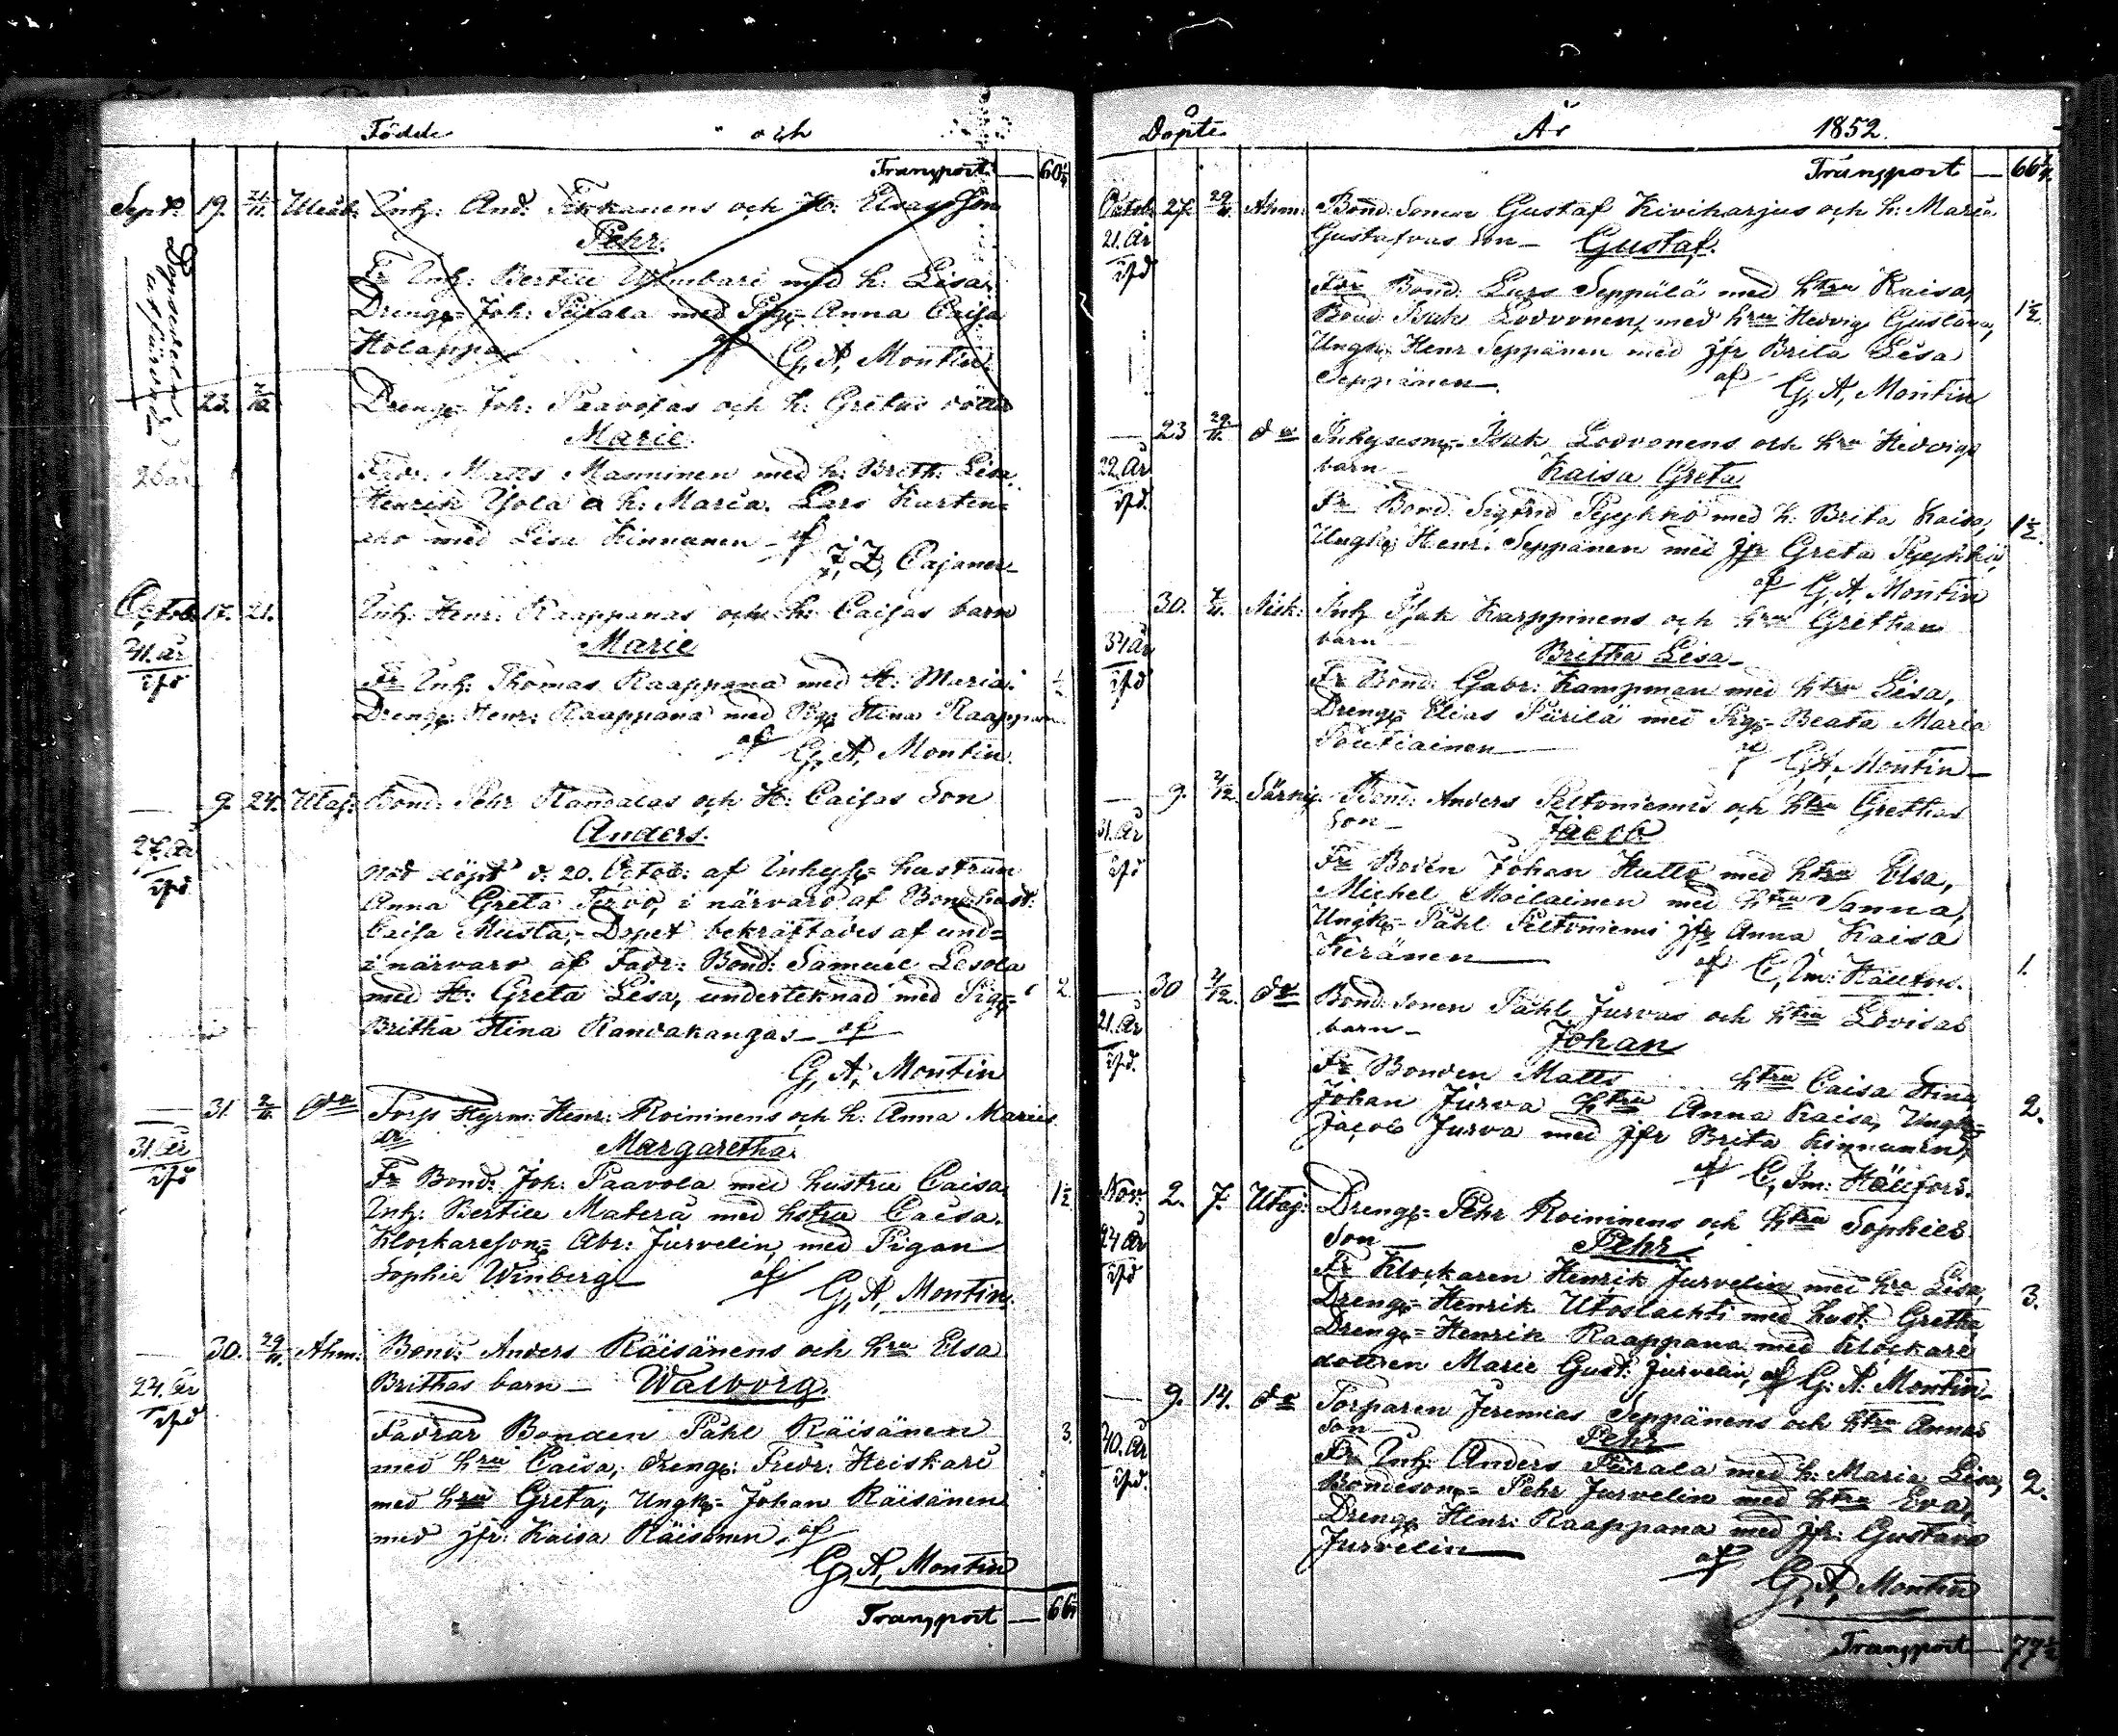 Födde och
Transport — 60½
Sept. 19. 21/11. Uleåb. Inh: And: Tikkanens och H: Elsas Son
Pehr.
Fr Inh: Bertill Wimbari med h: Lisa,
Dreng: Joh: Piirala med Pig: Anna Caisa
Holappa af G, A, Montin
Dopsedeln
23.
Dreng: Joh: Paavolas och h: Gretas dotter
Marie.
26 år
Fadr: Matts Manninen med h: Brith: Lisa,
Henrik Ylola o h: Maria. Lars Kurten-
aho med Lisa Kinnunen af
J, Z, Cajaner
Octob. 17. 21. Inh: Henr: Raappanas och h: Caisas barn
41. år
Marie
Fr Inh: Thomas Raappana med H: Maria. ½
Dreng: Henr: Raappana med Pig: Stina Raappana
af G, A, Montin.
— 9. 24. Utaj: Bond: Pehr Randalas och H: Caisas Son
27. år
Anders.
Nöd döpt d: 20. Octob: af Inhys: hustrun
Anna Greta Tervo, i närvaro af Bond.hust:
Caisa Musta,- Dopet bekräftades af und-
i närvaro af Fadr: Bond: Samuel Lesola
med H: Greta Lisa, underteknad med Pig= 2
Britha Stina Randakangas — af
G, A, Montin
— 31. 2/11. do Torp Hyrm: Henr: Roininens och h: Anna Maries
dr
31. år
Margaretha.
Fr Bond: Joh: Paavola med hustru Caisa, 1½
Inh: Bertill Matera med hstru Caisa.
Klockareson= Abr: Jurvelin, med Pigan
Sophie Winberg af
G, A, Montin.
— 30. 29/11. Ahm: Bond: Anders Räisänens och hru Elsa
24. år
Brithas barn — Walborg.
Fadrar Bonden Påhl Räisänen 3.
med hru Caisa; dreng: Fredr: Heiskari
med hru Greta; Ungk= Johan Räisänen
med jfr: Kaisa Räisänen, af
G, A, Montin
Transport — 66½
Döpte År 1852.
Transport — 66½
Octob. 27. 29/11. Ahm: Bond.Sonen Gustaf Kiviharjus och h: Maria
21. år
Gustafvas Son — Gustaf.
Fdr Bond: Lars Seppälä med htru Kaisa, 1½
Bond Isak Lovvonen, med hru Hedvig Gustava,
Ungk: Henr Seppänen med jfr Brita Lisa
Seppänen. af G, A, Montin
— 23 29/11. do Inhysesm= Isak Lovvonens och hru Hedvigs
22. år
barn — Kaisa Greta
Fr Bond: Sigfrid Pyykkö med h: Brita Kaisa, 1½.
Ungk: Henr: Seppänen med jfr Greta Pyykkö,
af G, A, Montin
30. 7/11. Nisk: Inh Isak Karppinens och hru Grethas
34 år
barn — Britha Lisa —
Fr Bond: Gabr: Kampman med htru Lisa,
Dreng: Elias Piirilä med Pig= Beata Maria
Poutiainen — af G, A, Montin —
— 9. 2/12. Särk: Bond: Anders Peltoniemis och htru Grethas
31. år
Son — Jacob
Fr Bdn Johan Hutto med htru Elsa,
Michel Moilainen med htru Sanna,
Ungk= Påhl Peltoniemi jfr Anna Kaisa
Keränen — af C, Im: Hällfors. 1.
— 30 2/12. do Bond.Sonen Påhl Jurvas och htru Lovisas
21. år
barn — Johan
Fr Bonden Matts htru Caisa Stina,
Johan Jurva htru Anna Kaisa, Ungk= 2.
Jacob Jurva med jfr Brita Kinnunen,
af C, Im: Hällfors.
Nov: 2. 7. Utaj: Dreng= Pehr Roininens och htru Sophies
24 år
Son — Pehr
Fr Klockaren Henrik Jurvelin med hru Lisa,
Dreng= Henrik Utoslachti med hust: Gretha 3.
Dreng= Henrik Raappana med klockare
dottren Marie Gust: Jurvelin, af G: A: Montin —
— 9. 14. do Torparen Jeremias Seppänens och htru Annas
40. år
Son — Pehr
Fr Inh: Anders Piirala med h: Maria Lisa, 2.
bondeson= Pehr Jurvelin med htru Eva,
Dreng Henr: Raappana med jfr: Gustava
Jurvelin — af
G, A, Montin
Transport — 77½